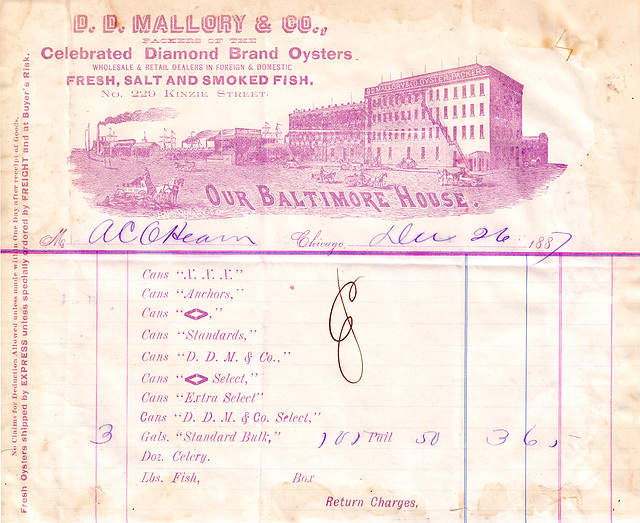 D. D. MALLORY & CO.,
PACKERS OF THE
Celebrated Diamond Brand Oysters
WHOLESALE & RETAIL DEALERS IN FOREIGN & DOMESTIC
FRESH, SALT AND SMOKED FISH.
No. 229 KINZIE STREET.
D.D. MALLORY & CO. OYSTER PACKERS
OUR BALTIMORE HOUSE.
M A C O Hearn Chicago, Dec 26 1887
Cans "X. X. X."
Cans "Anchors,"
Cans "<>,"
Cans "Standards,"
Cans "D. D. M. & Co.,"
Cans "<> Select,"
Cans "Extra Select"
Cans "D. D. M. & Co. Select,"
3 Gals. "Standard Bulk," Pail 50 3 65
Doz. Celery.
Lbs. Fish, Box
Return Charges,
No Claims for Deduction Allowed unless made within One Day after receipt of Goods.
Fresh Oysters shipped by EXPRESS unless specially ordered by FREIGHT and at Buyer's Risk.